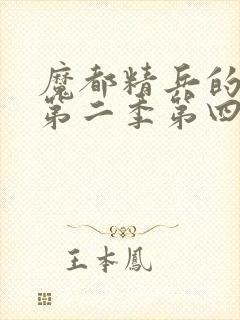 魔都精兵的
第二季第四
王本鳳